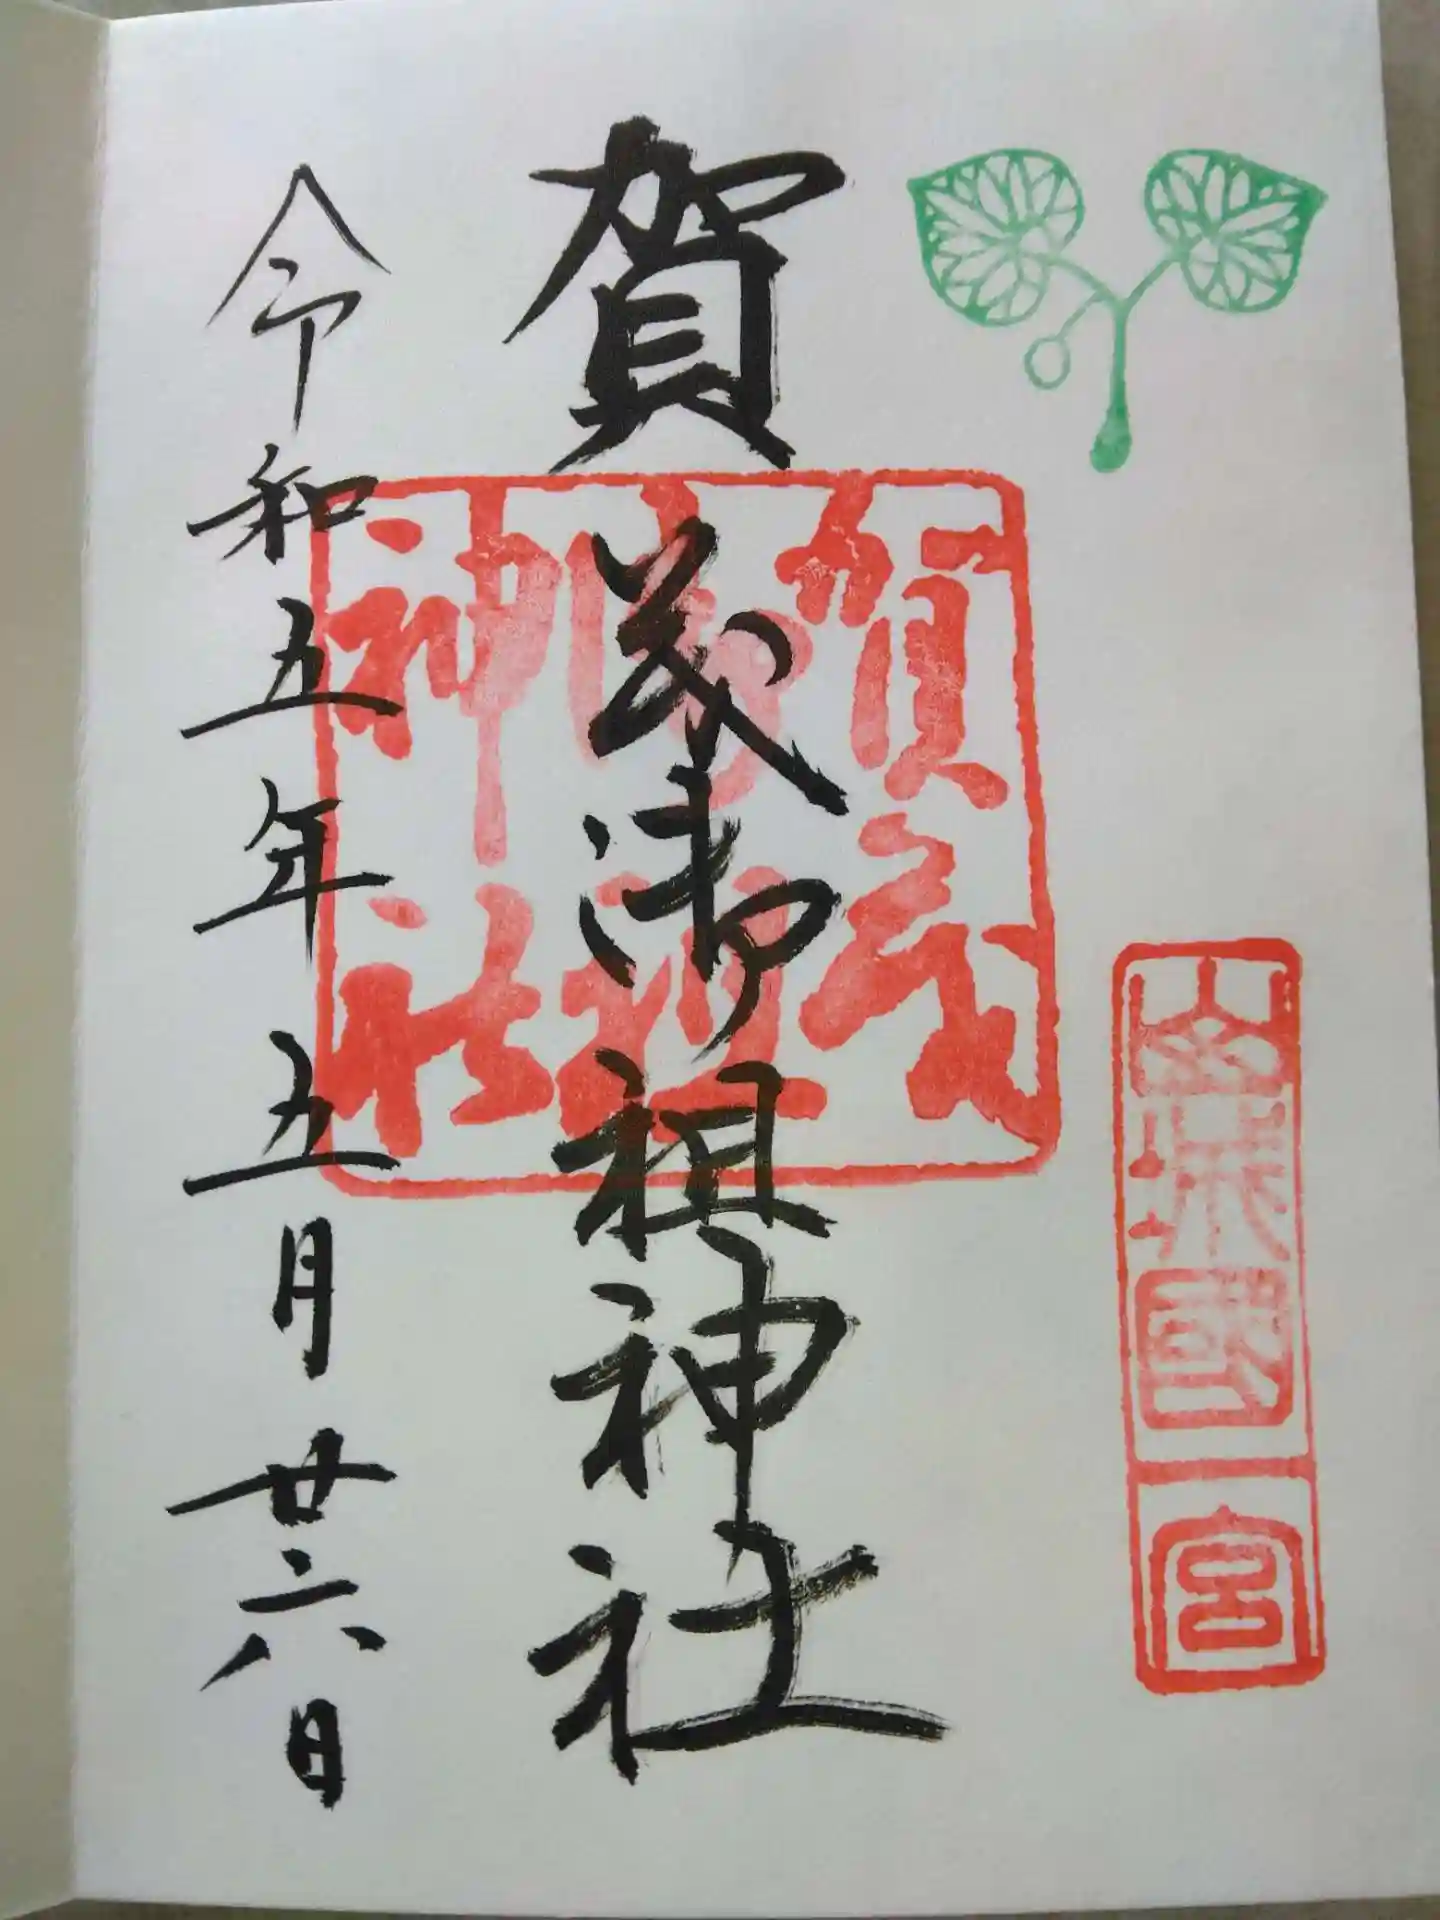 山城國
一宮
賀茂御祖神社
賀茂
御祖
神社
令和五年五月廿六日